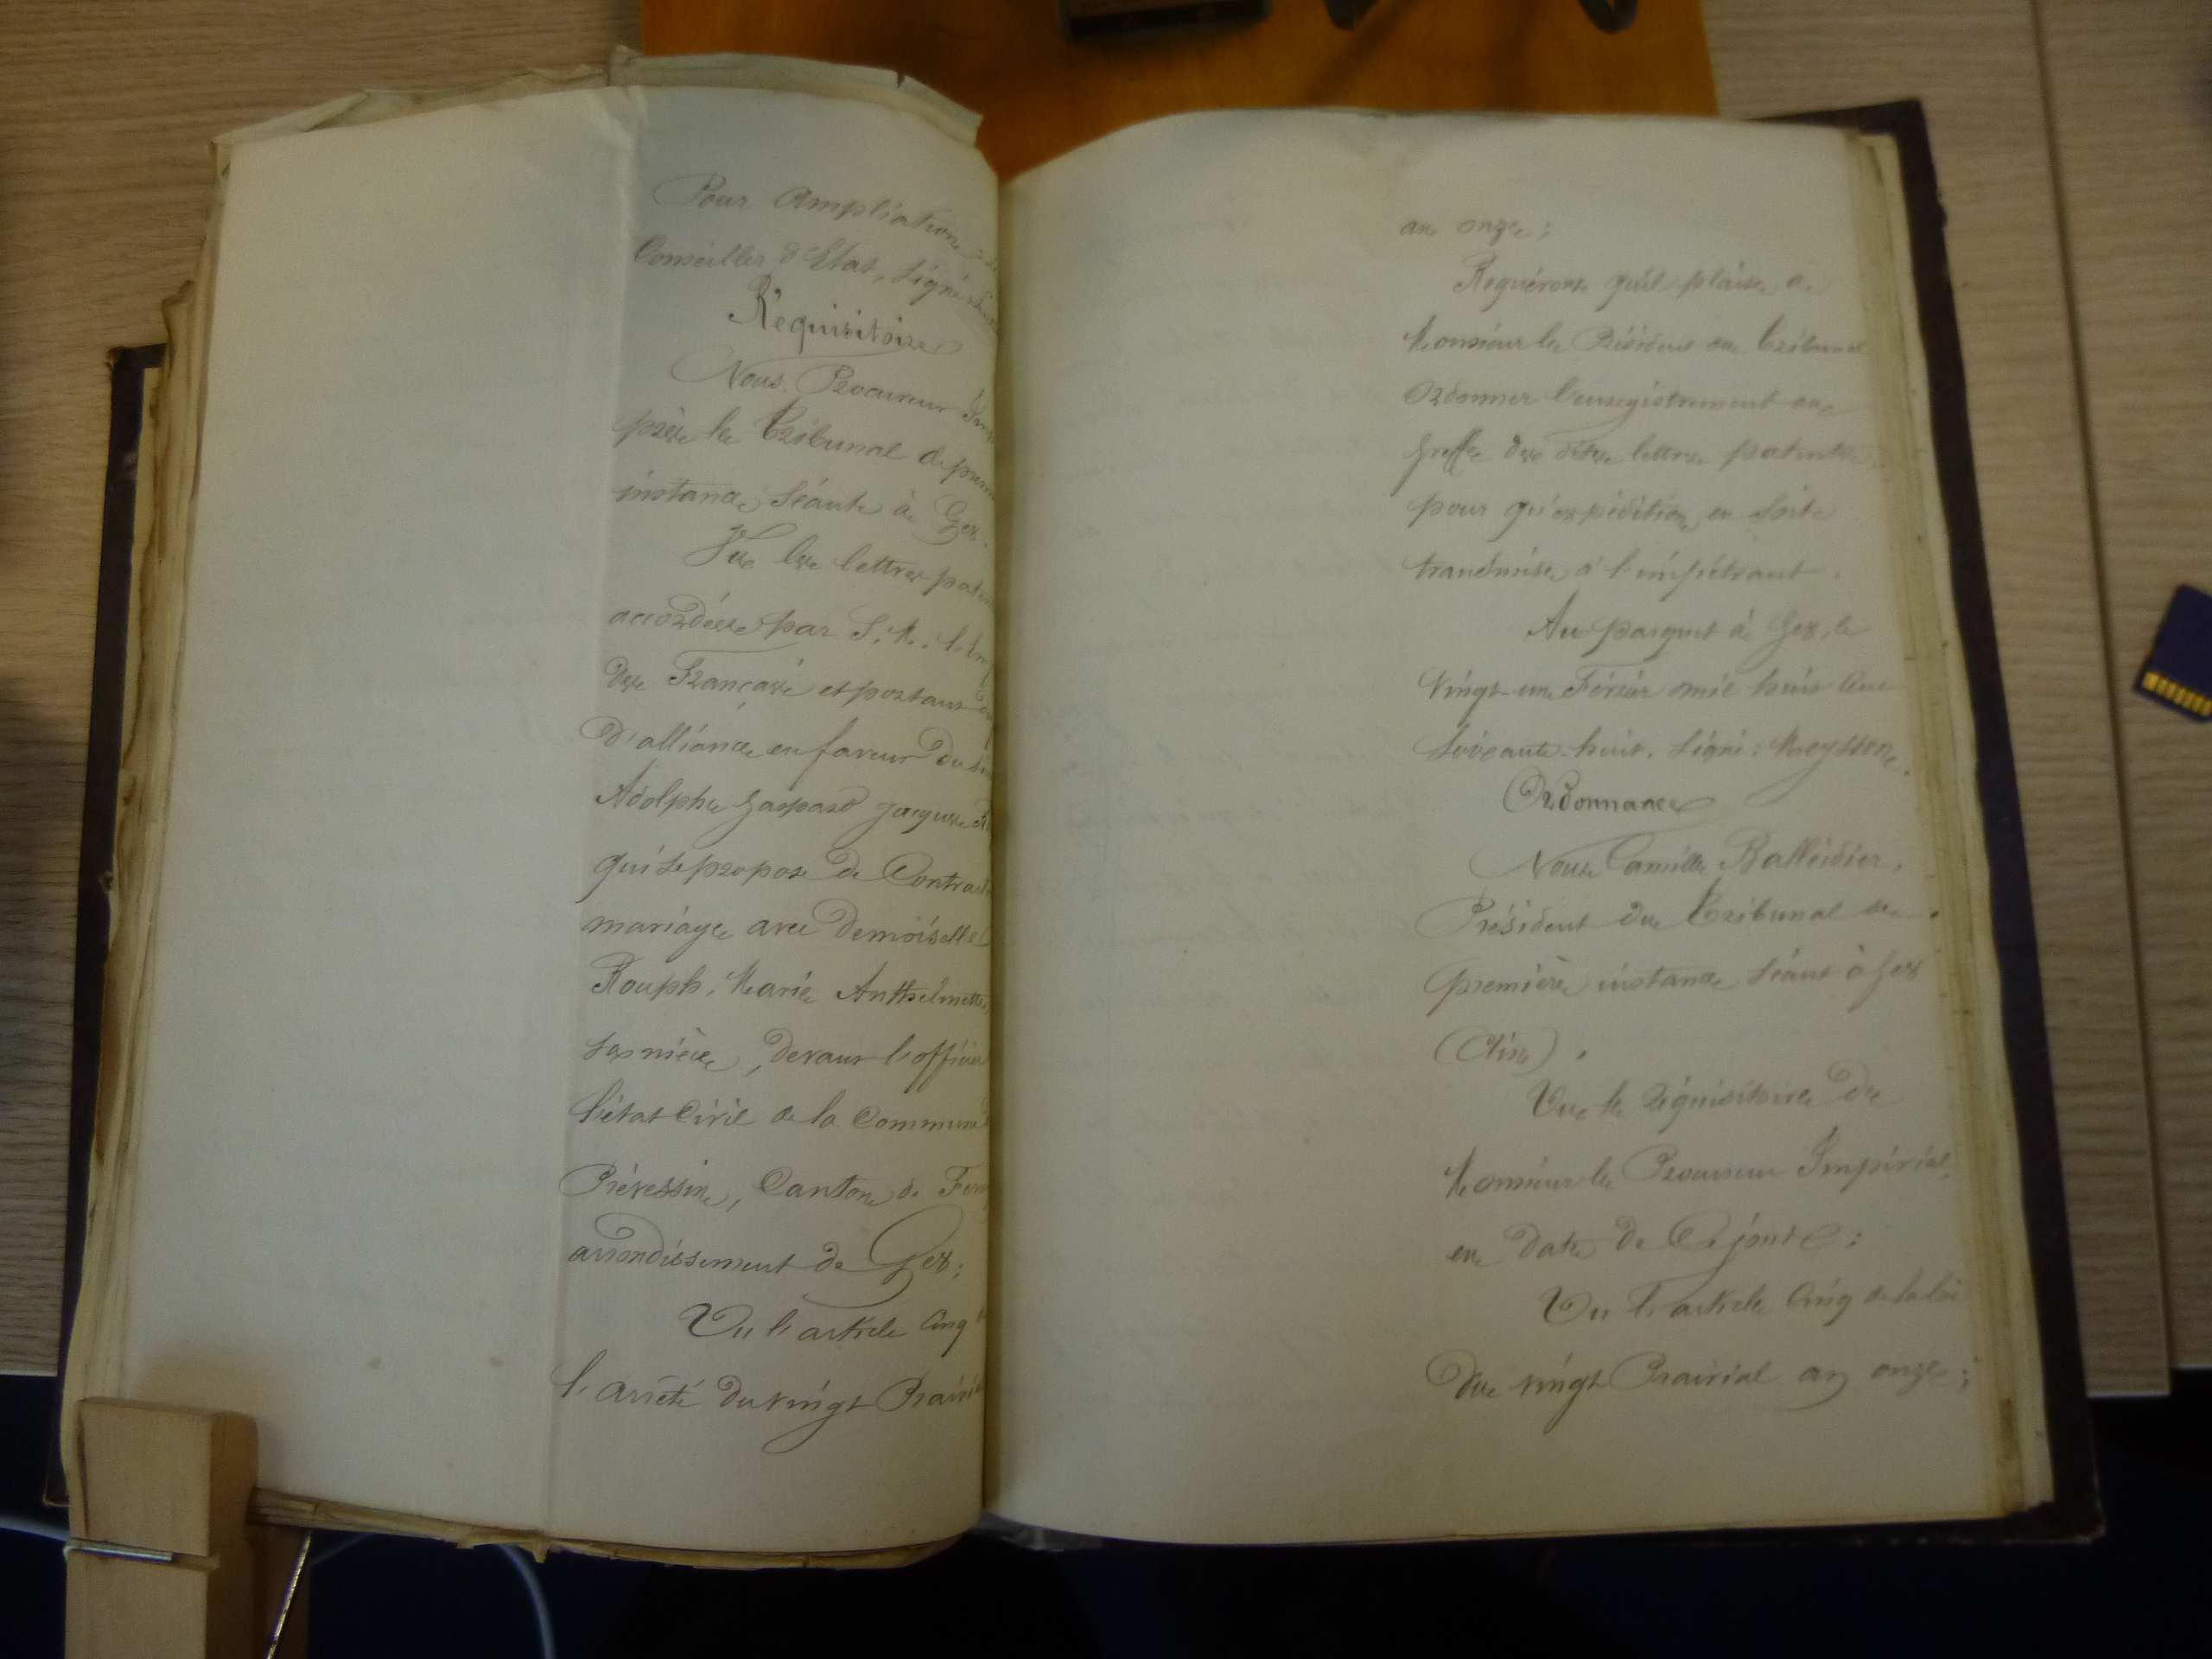 Pour ampliation
Conseiller d'Etat, signé
Réquisitoire
Nous Procureur
près le Tribunal de
instance, séante à Gex.
Vu les lettres
accordées par S. M.
des Français et portant
d'alliance en faveur du
Adolphe Gaspard Jacques
qui se propose de
mariage avec demoiselle
Rouph, Marie Anthelmette
sa nièce, devant l'officier
l'état civil de la Commune
Prévessin, Canton de
arrondissement de Gex;
Vu l'article Cinq
l'arrêté du vingt
an onze;
Requérons qu'il plaise a
Monsieur le Président du Tribunal
Ordonner l'enregistrement au
greffe des dites lettres patentes
pour qu'expédition en soit
transmise à l'impétrant.
Au parquet à Gex, le
Vingt-un Février mil huit Cent
soixante-huit. signé: Meysson.
Ordonnance
Nous Camille Balleidier,
Président du Tribunal de
première instance séant à Gex
(Ain).
Vu le réquisitoire de
Monsieur le Procureur Impérial,
en date de Ce jour:
Vu l'article Cinq de la loi
du vingt Prairial an onze;